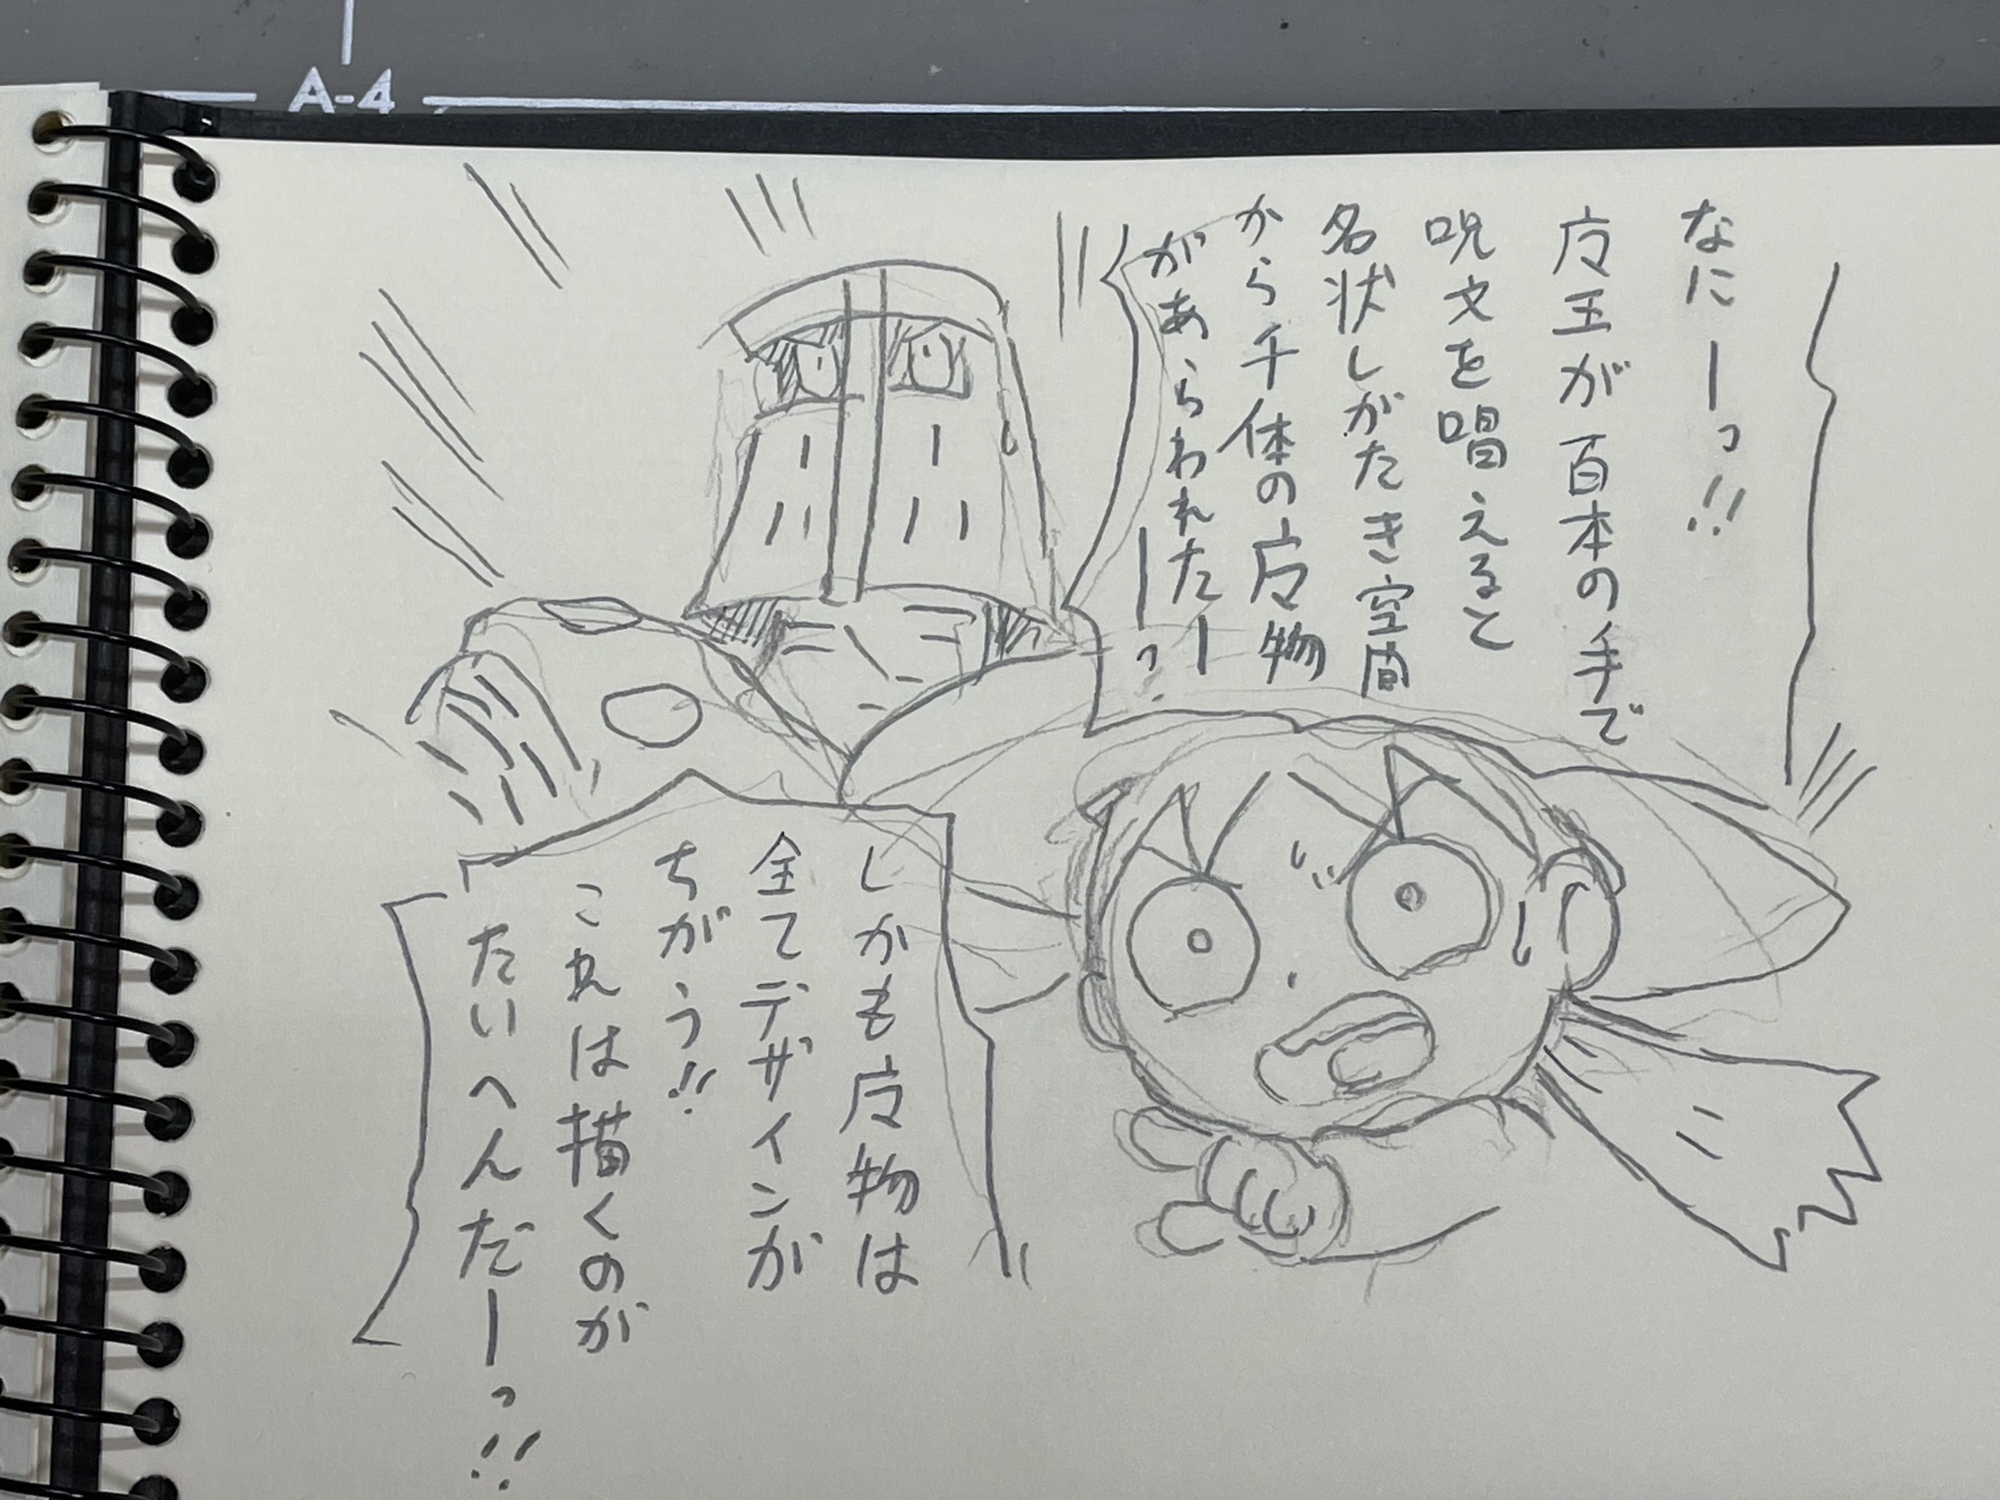 A-4
なにーっ!!
广マ王が百本の手で
呪文を唱えると
名状しがたき空间
から千体の广マ物
があらわれたーーっ?
しかも广マ物は
全てデザインが
ちがう!!
これは描くのが
たいへんだーっ!!